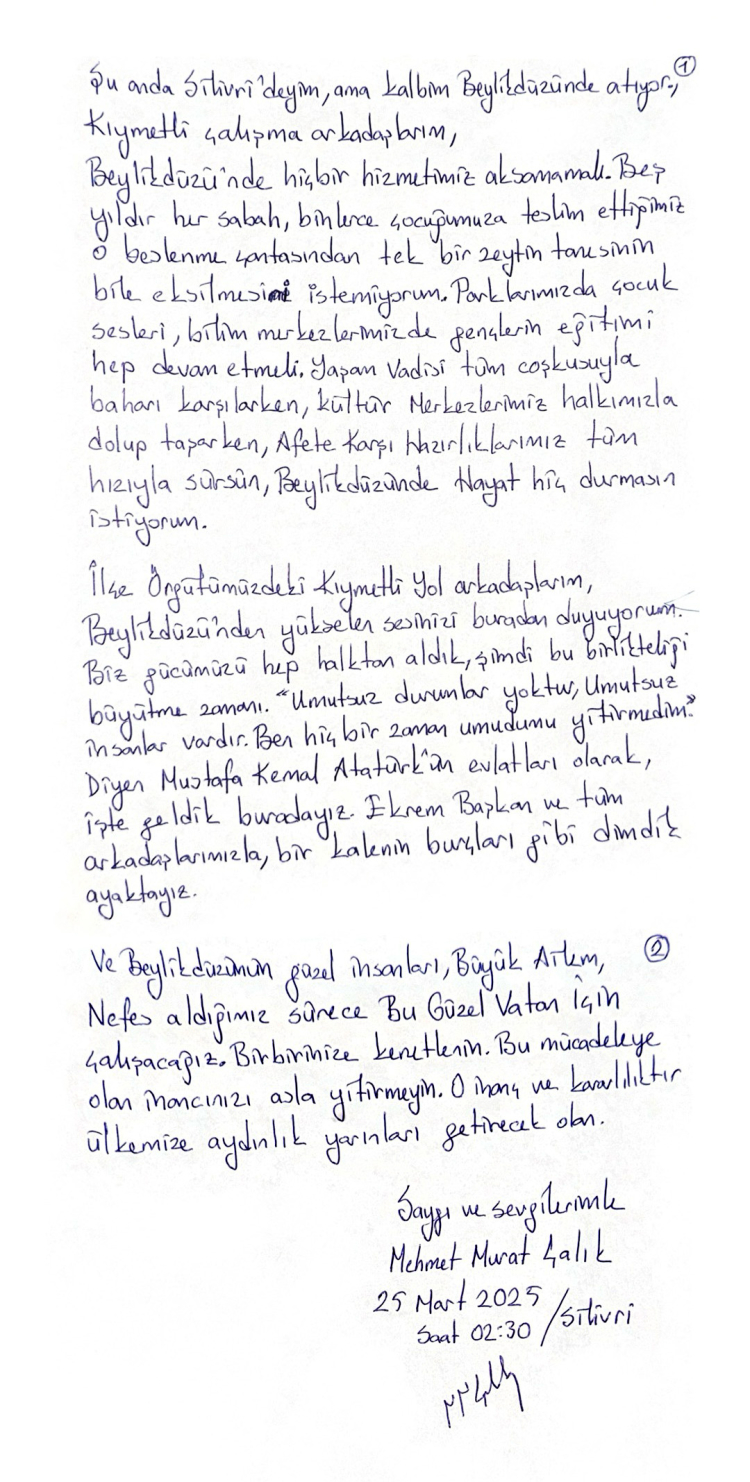 ①
Şu anda Silivri'deyim, ama kalbim Beylikdüzünde atıyor,
Kıymetli çalışma arkadaşlarım,
Beylikdüzü'nde hiçbir hizmetimiz aksamamalı. Beş
yıldır her sabah, binlerce çocuğumuza teslim ettiğimiz
o beslenme çantasından tek bir zeytin tanesinin
bile eksilmesini istemiyorum. Parklarımızda çocuk
sesleri, bilim merkezlerimizde gençlerin eğitimi
hep devam etmeli. Yaşam Vadisi tüm coşkusuyla
baharı karşılarken, kültür Merkezlerimiz halkımızla
dolup taşarken, Afete Karşı Hazırlıklarımız tüm
hızıyla sürsün, Beylikdüzünde Hayat hiç durmasın
istiyorum.
İlçe Örgütümüzdeki Kıymetli Yol arkadaşlarım,
Beylikdüzü'nden yükselen sesinizi buradan duyuyorum.
Biz gücümüzü hep halktan aldık, şimdi bu birlikteliği
büyütme zamanı. "Umutsuz durumlar yoktur, Umutsuz
insanlar vardır. Ben hiç bir zaman umudumu yitirmedim."
Diyen Mustafa Kemal Atatürk'ün evlatları olarak,
işte geldik buradayız. Ekrem Başkan ve tüm
arkadaşlarımızla, bir kalenin burçları gibi dimdik
ayaktayız.
②
Ve Beylikdüzünün güzel insanları, Büyük Ailem,
Nefes aldığımız sürece Bu Güzel Vatan İçin
çalışacağız. Birbirinize kenetlenin. Bu mücadeleye
olan inancınızı asla yitirmeyin. O inanç ve kararlılıktır
ülkemize aydınlık yarınları getirecek olan.
Saygı ve sevgilerimle
Mehmet Murat Çalık
25 Mart 2025 /Silivri
Saat 02:30